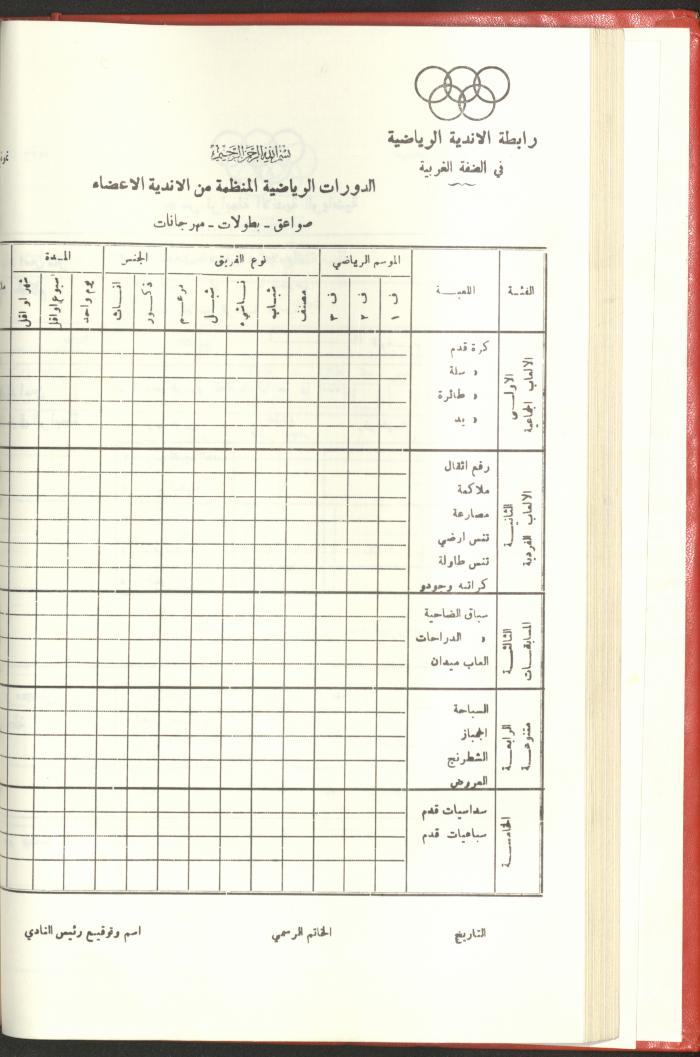 رابطة الاندية الرياضية
في الضفة الغربية
بسم الله الرحمن الرحيم
الدورات الرياضية المنظمة من الاندية الاعضاء
صواعق - بطولات - مهرجانات
الفئة
اللعبة
الموسم الرياضي
نوع الفريق
الجنس
المدة
ف ١
ف ٢
ف ٣
مصنف
شباب
ناشيء
شبل
برعم
ذكور
اناث
يوم واحد
اسبوع او اقل
شهر او اقل
الاولى
الالعاب الجماعية
كرة قدم
» سلة
» طائرة
» يد
الثانية
الالعاب الفردية
رفع اثقال
ملاكمة
مصارعة
تنس ارضي
تنس طاولة
كراتيه وجودو
الثالثة
المسابقات
سباق الضاحية
» الدراجات
العاب ميدان
الرابعة
متنوعة
السباحة
الجمباز
الشطرنج
العروض
الخامسة
سداسيات قدم
سباعيات قدم
التاريخ
الخاتم الرسمي
اسم وتوقيع رئيس النادي